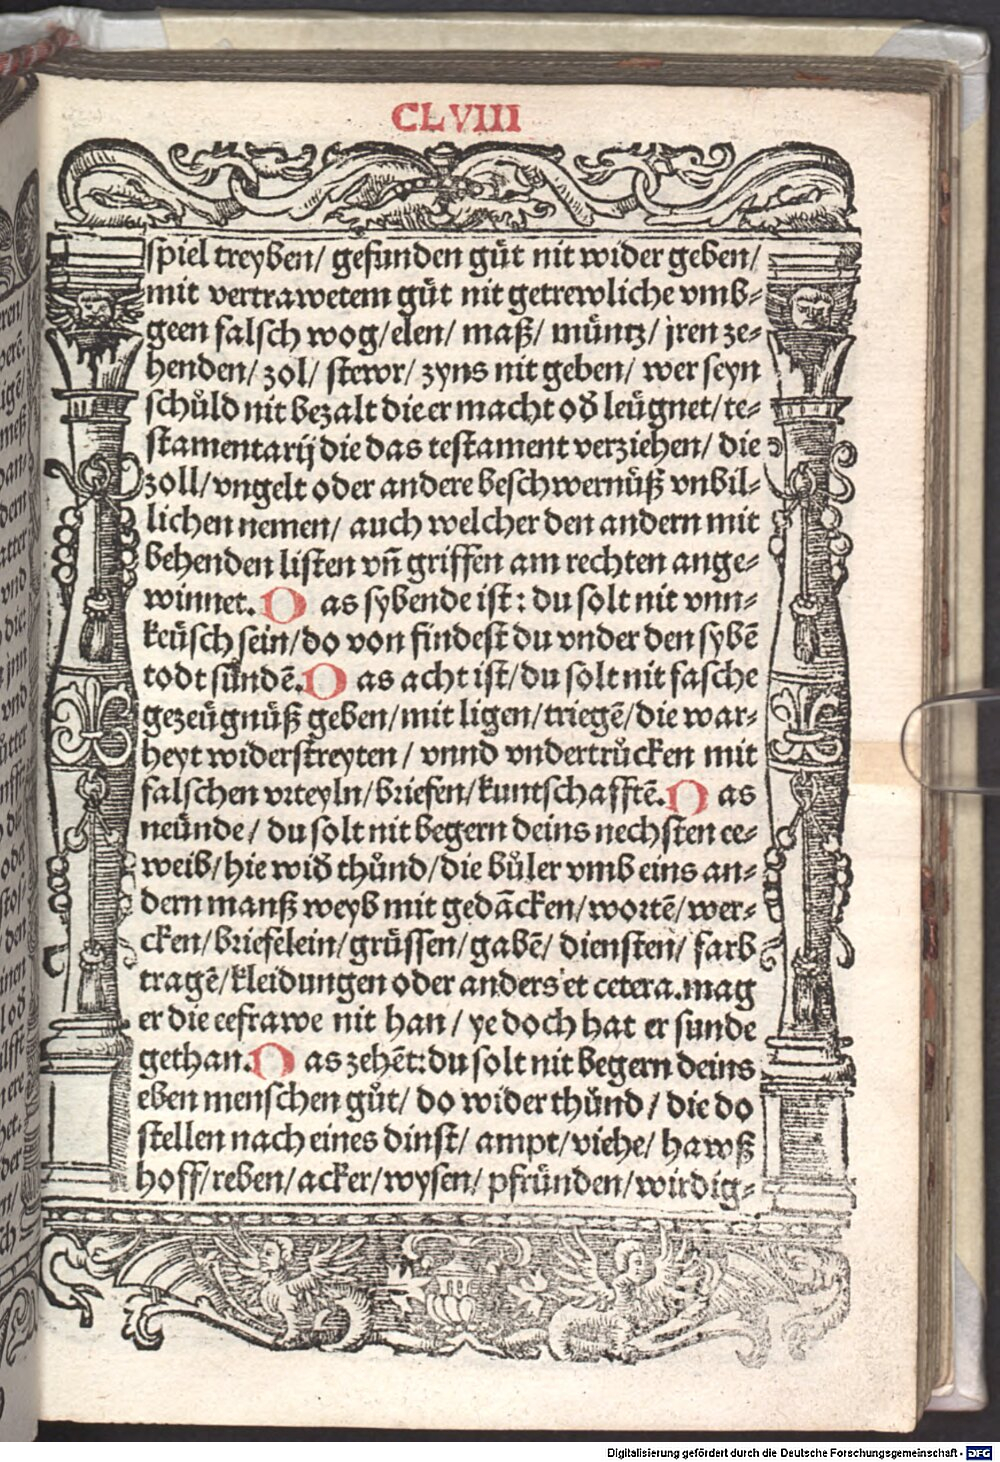 CLVIII
spiel treyben/ gefunden gůt nit wider geben/
mit vertrawetem gůt nit getrewliche vmb⸗
geen falsch wog/elen/ maß/ müntz/ jren ze⸗
henden/ zol/ stewr/ zyns nit geben/ wer seyn
schůld nit bezalt die er macht od̕ leügnet/te⸗
stamentarij die das testament verziehen/ die
zoll/vngelt oder andere beschwernüß vnbil⸗
lichen nemen/ auch welcher den andern mit
behenden listen vñ griffen am rechten ange⸗
winnet. Das sybende ist: du solt nit vnn⸗
keüsch sein/do von findest du vnder den sybē
todt sündē. Das acht ist/du solt nit fasche
gezeügnüß geben/mit ligen/triegē/die war⸗
heyt widerstreyten/ vnnd vndertrůcken mit
falschen vrteyln/briefen/kuntschafftē. Das
neünde/ du solt nit begern deins nechsten ee⸗
weib/hie wid̕ thůnd/die bůler vmb eins an⸗
dern manß weyb mit gedācken/wortē/wer⸗
cken/briefelein/grüssen/gabē/ diensten/ farb
tragē/kleidungen oder anders et cetera.mag
er die eefrawe nit han/ ye doch hat er sunde
gethan. Das zehēt: du solt nit begern deins
eben menschen gůt/ do wider thůnd/ die do
stellen nach eines dinst/ ampt/viehe/ hawß
hoff/reben/acker/wysen/ pfründen/wirdig⸗
Digitalisierung gefördert durch die Deutsche Forschungsgemeinschaft - DFG